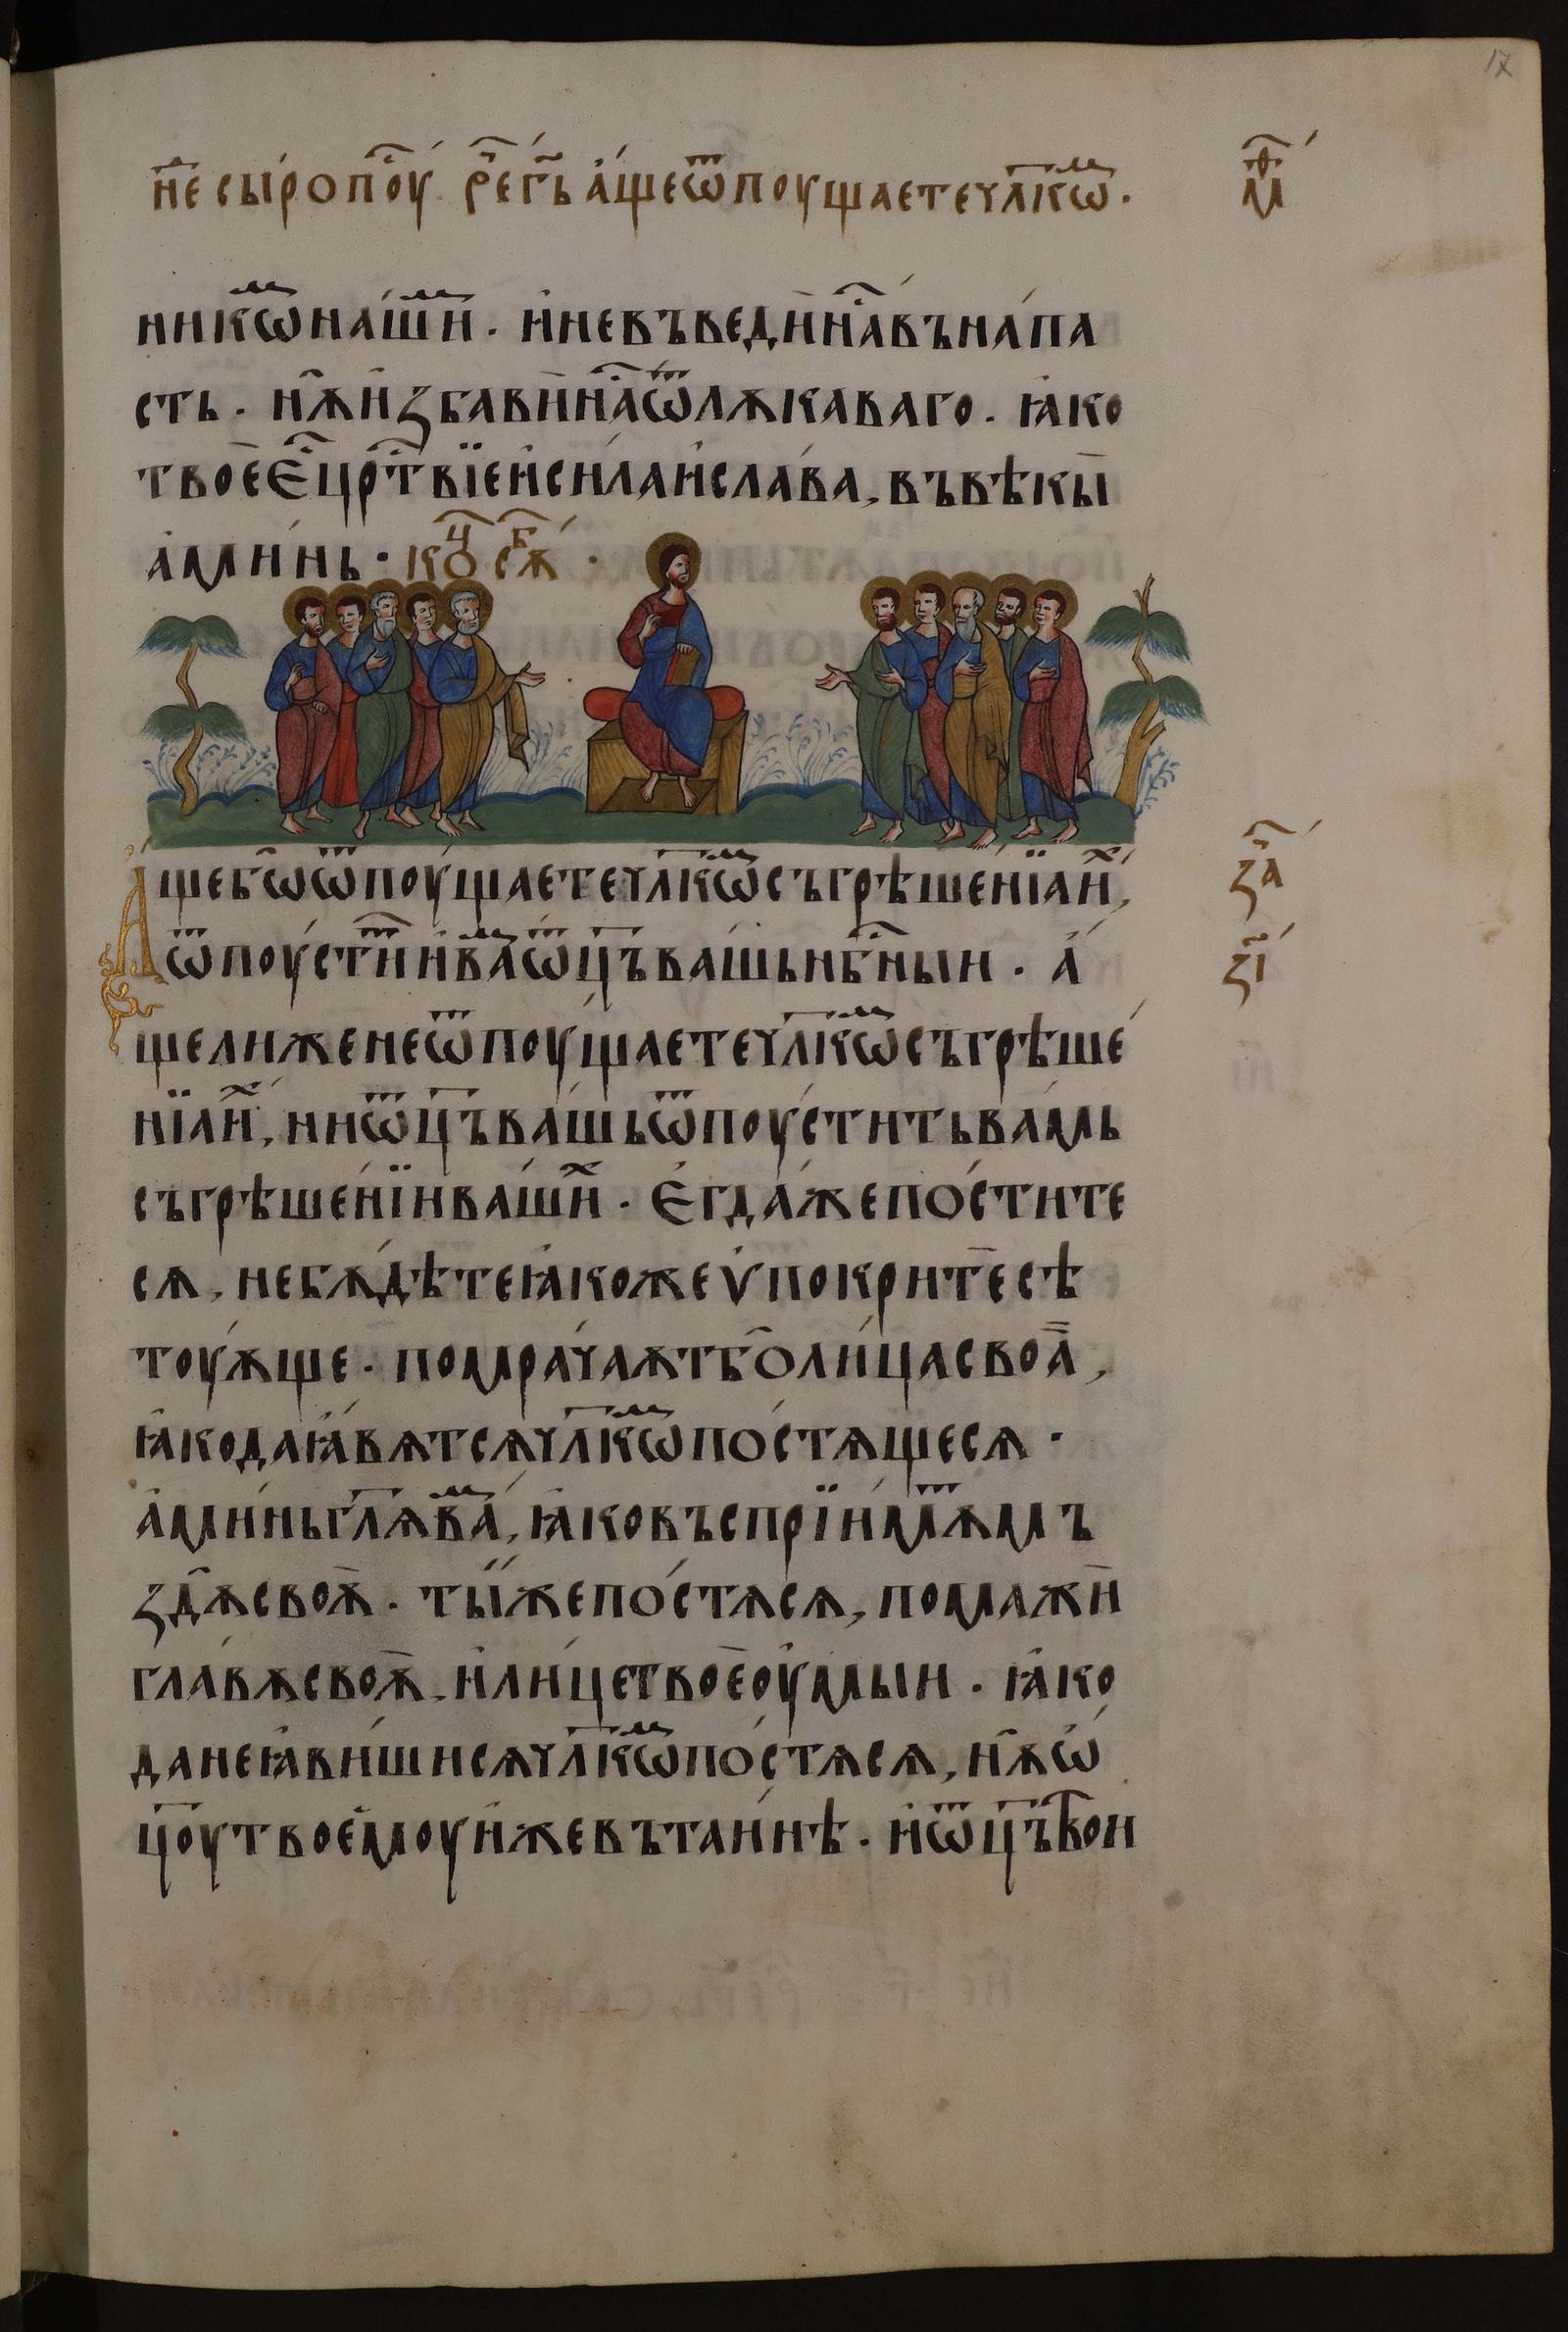 17
не҃ сыропо҇у. ре҇ г҃ь а́ще ѿпоущаете чл҃кѡⷨ.
мⷴ҇
никѡⷨ нашиⷨ. и не въведи на҇ въ напа
сть. нѫ҆ избави на҇ ѿ лѫкаваго. ꙗко
твое е҇ цр҇твїе и сила и слава, въ вѣкы
аминь. коⷰ҇ сѫⷠ҇.
Аще бѡ ѿпоущаете чл҃кѡⷨ съгрѣшенїа иⷯ,
за҇
ѿпоустиⷮ и ваⷨ ѿц҃ъ вашь нб҇ныи. а
з҃і
ще ли же не ѿпоущаете чл҃кѡⷨ съгрѣше
нїа иⷯ, ни ѿц҃ъ вашь ѿпоустить вамь
съгрѣшенїи вашиⷯ. Егда же постите
сѧ, не бѫдѣте ꙗкоже ѵпокрите сѣ
тоуѫще. помрачаѫт бо лица своа,
ꙗко да ꙗвѧтсѧ чл҃кѡⷨ постѧщесѧ.
аминь гл҃ѧ ваⷨ, ꙗко въспрїимѫⷮ мъ
здѫ своѫ. ты же постѧсѧ, помажи
главѫ своѫ, и лице твое оумыи. ꙗко
да не ꙗвишисѧ чл҃кѡⷨ постѧсѧ, нѫ ѡ
ц҃оу твоемоу иже въ таинѣ. и ѿц҃ъ твои